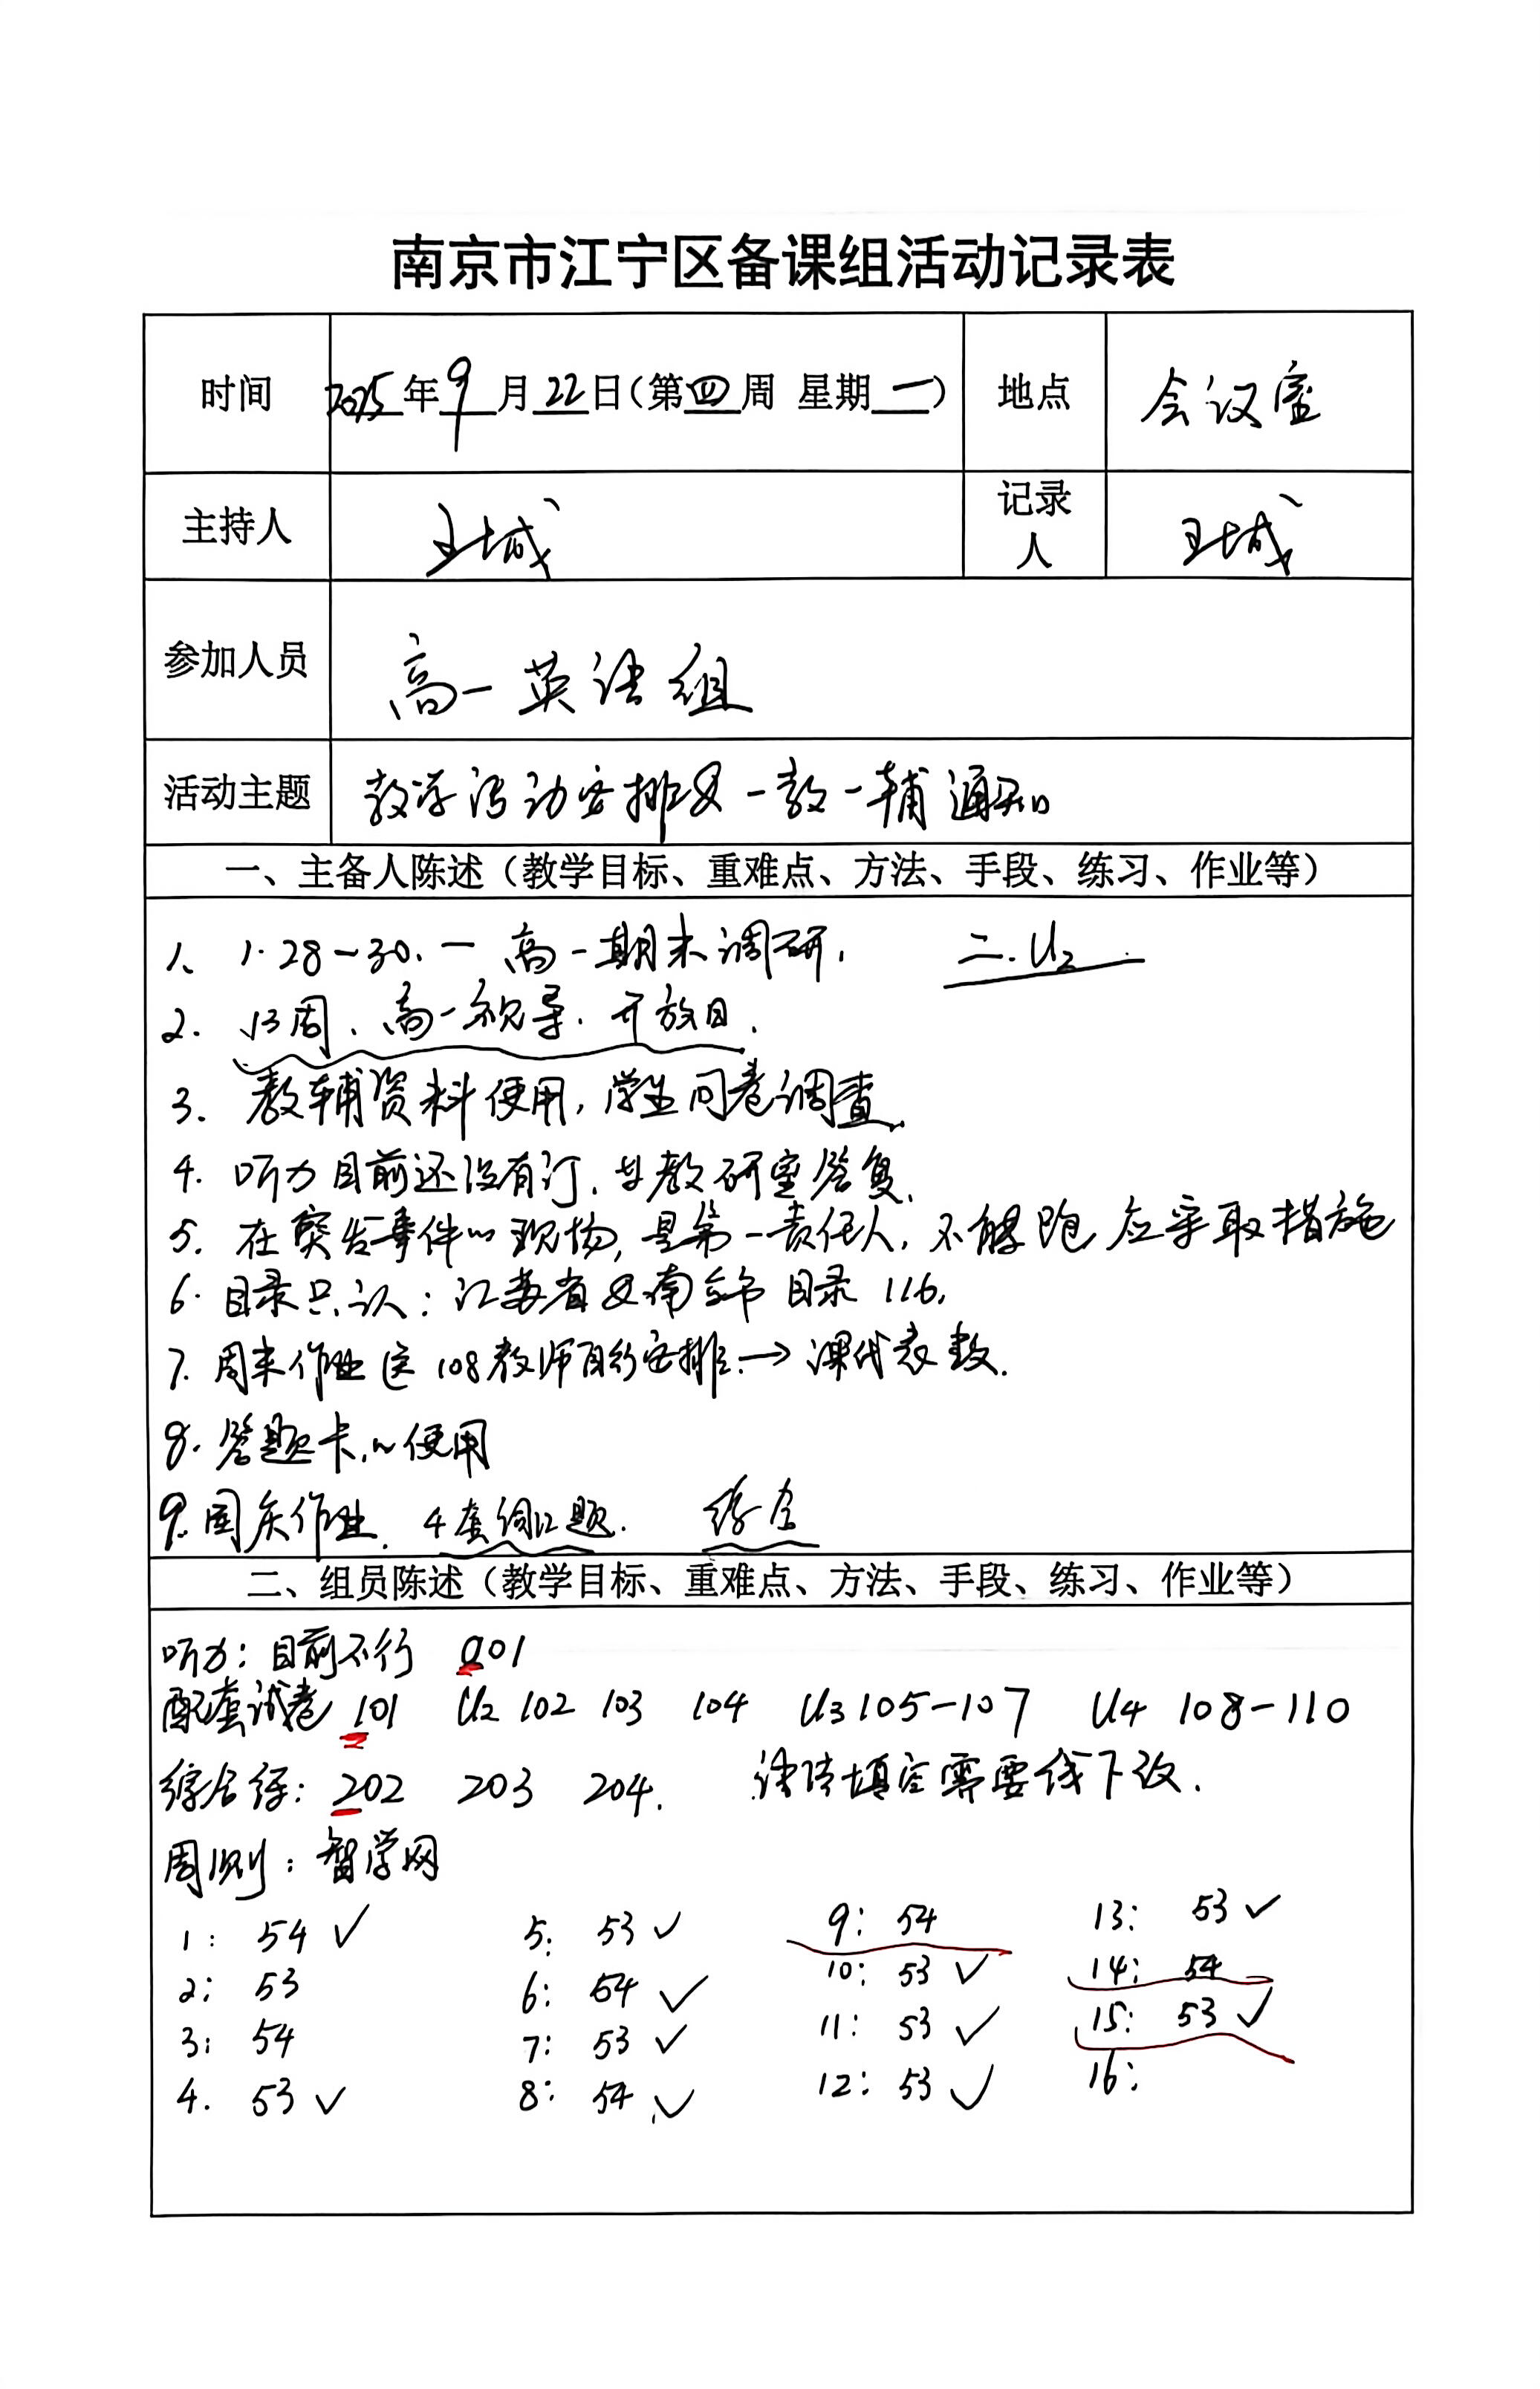 南京市江宁区备课组活动记录表
时间 2025年9月22日(第四周 星期一) 地点 会议室
主持人 王城 记录人 王城
参加人员 高一英语组
活动主题 教学活动安排及一教一辅通知
一、主备人陈述(教学目标、重难点、方法、手段、练习、作业等)
1、1.28-30.一高一期末调研. 二.U2.
2. 13周、高一视导.开放日.
3. 教辅资料使用,学生问卷调查.
4. 听力目前还没有订,教研室答复.
5. 在突发事件的现场,是第一责任人,不能跑应采取措施
6. 目录只认:江苏省及南京市目录116.
7. 周末作业 108教师自行安排→课代表数.
8. 答题卡的使用
9. 国庆作业. 4套 题. 综合
二、组员陈述(教学目标、重难点、方法、手段、练习、作业等)
听力:目前不行 001
配套试卷 101 U2 102 103 104 U3 105-107 U4 108-110
综合练: 202 203 204. 填空需要线下改.
周测:智学网
1: 54 ✓ 5: 53 ✓ 9: 54 13: 53 ✓
2: 53 6: 54 ✓ 10: 53 ✓ 14: 54
3: 54 7: 53 ✓ 11: 53 ✓ 15: 53 ✓
4. 53 ✓ 8: 54 ✓ 12: 53 ✓ 16: